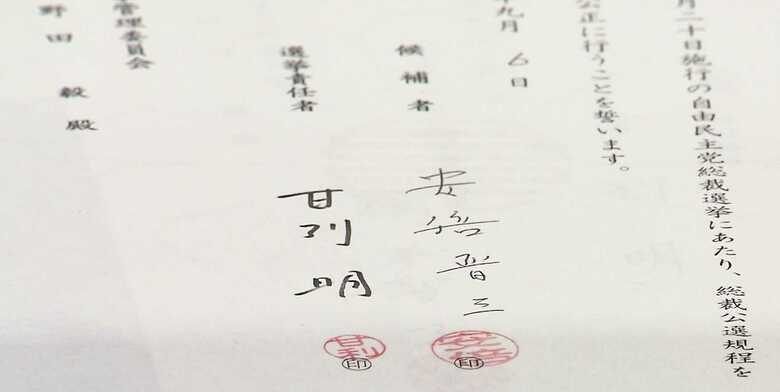 月二十日施行の自由民主党総裁選挙にあたり、総裁公選規程を
公正に行うことを誓います。
九月 6 日
候補者 安倍晋三 安倍 印
選挙責任者 甘利明 甘利 印
管理委員会
野田毅殿